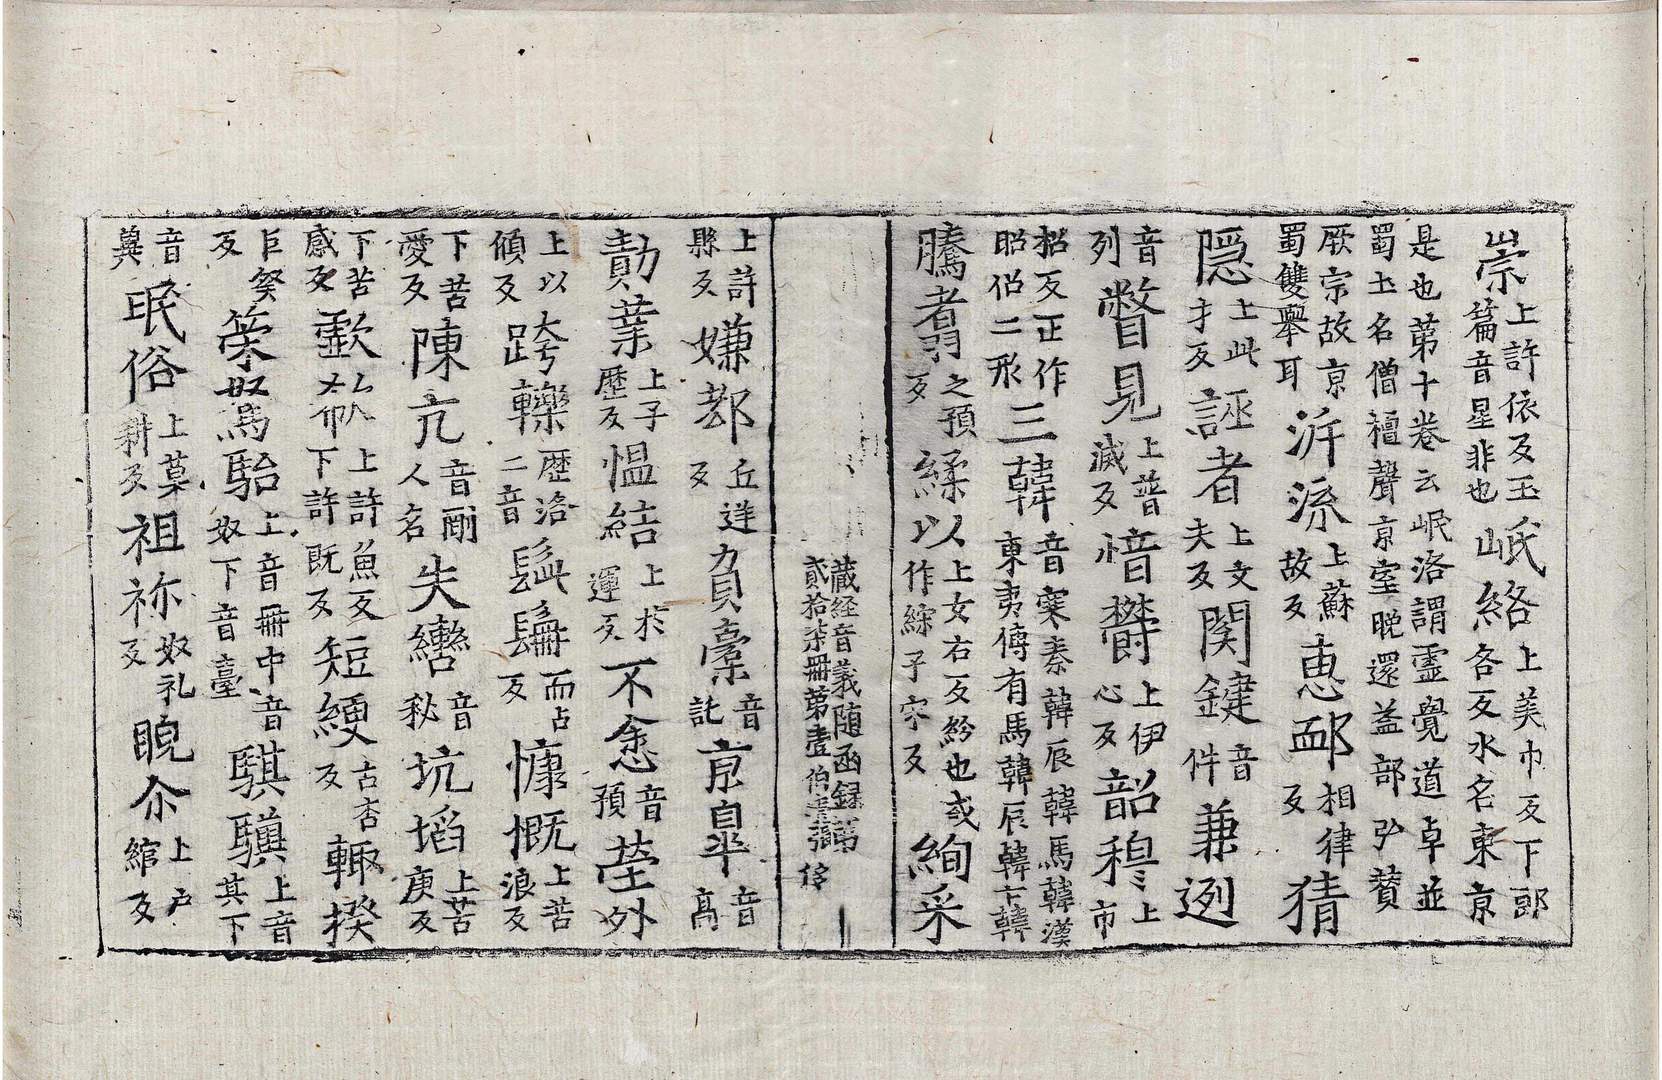 崈上許依反玉篇音星非也岷絡上美巾反下郎各反水名東京
是也第十卷云岷洛謂靈覺道卓並蜀土名僧檀聲京室晚還益部弘賛
厥宗故京蜀雙舉耳泝流上蘇故反惠卹相律反猜
隠上此才反誣者上文夫反関鍵音件兼迾
音列瞥見上普滅反愔欝上伊心反韶穆〻上市
招反正作昭佋二形三韓音寒秦韓辰韓馬韓漢東夷傳有馬韓辰韓卞韓
騰翥之預反緌以上女右反紛也或作綜子宋反絢采
藏経音義随函録第
貳拾柒冊第壹伯壹張 侈
上許縣反嫌郄丘逆反負橐音託京皐音髙
勣業上子歴反愠結上於運反不悆音預塋外
上以傾反跨轢歴洛二音髭髯而占反慷慨上苦浪反
下苦愛反陳亢音剛人名失轡音秘坑埳上苦庚反
下苦感反歔欷上許魚反下許既反短綆古杏反輙揆
巨癸反䇹駑駘上音冊中音奴下音臺騏驥上音其下
音兾氓俗上莫耕反祖祢奴礼反睆尒上戸綰反